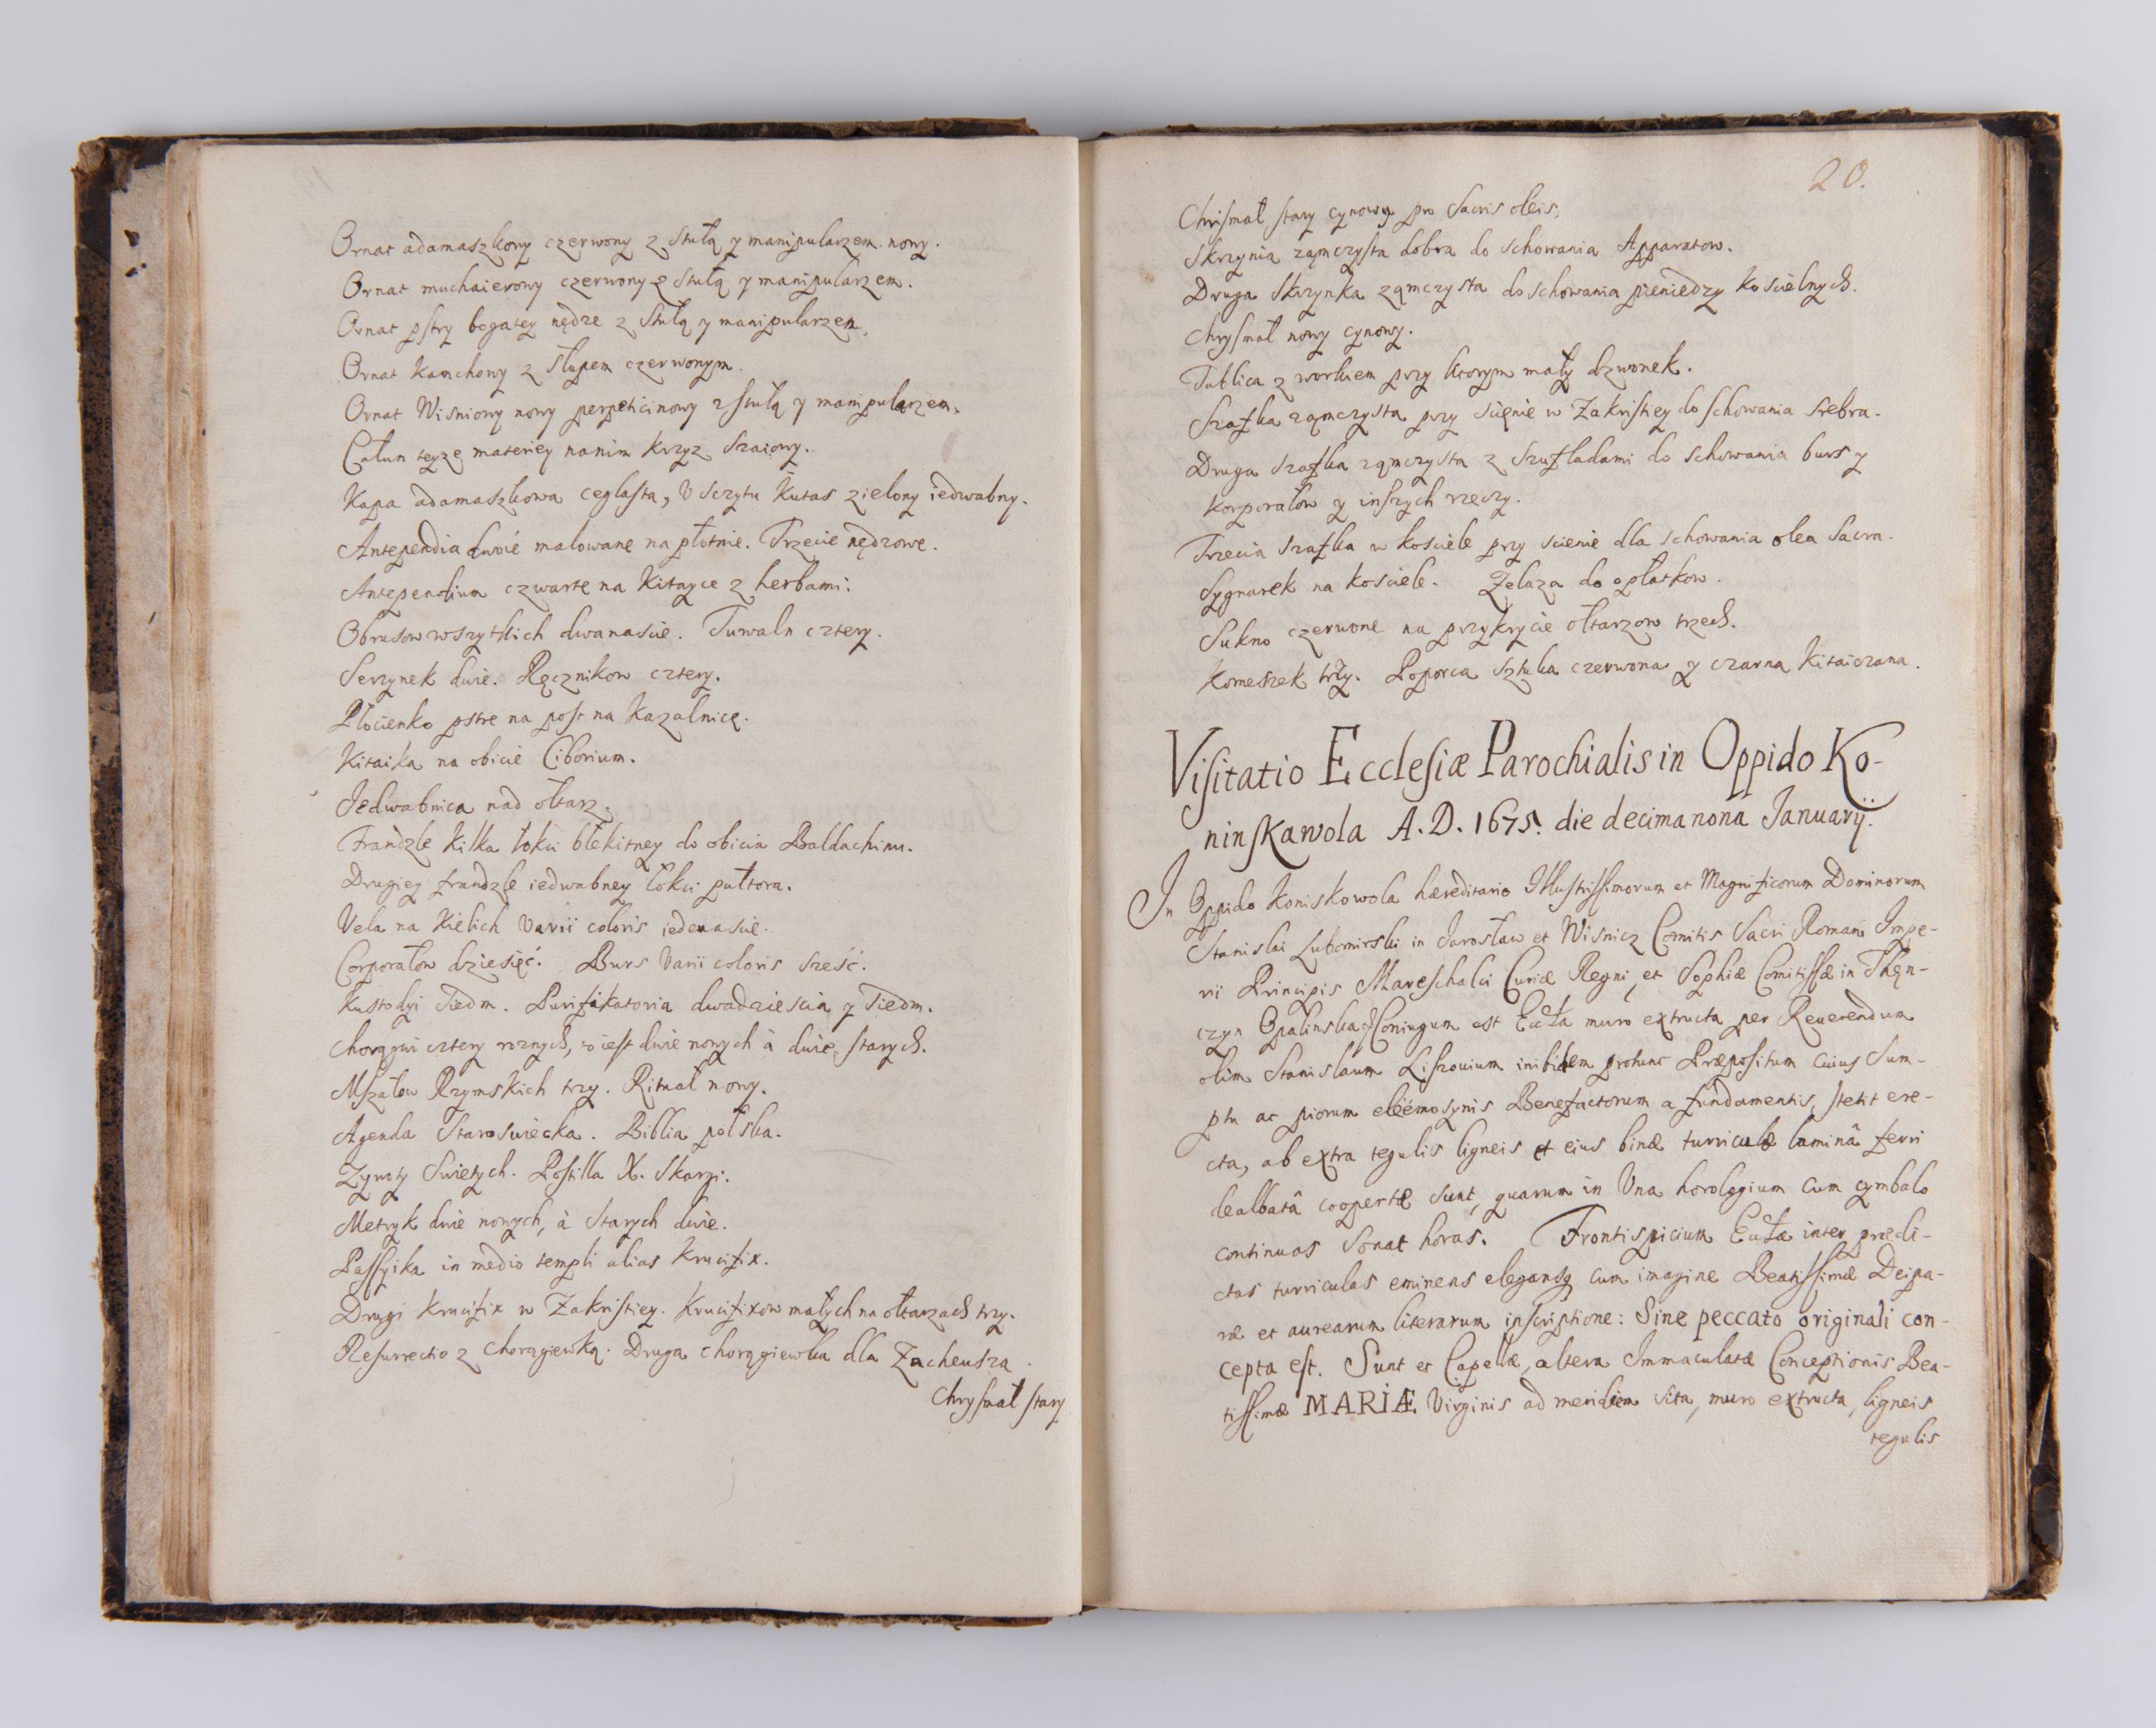 Ornat adamaszkowy czerwony z stułą y manipularzem nowy.
Ornat muchaierowy czerwony z stułą y manipularzem.
Ornat pstry bogatey nędze z stułą y manipularzem.
Ornat Kamchowy z słupem czerwonym.
Ornat Wisniowy nowy perpeticinowy z stułą y manipularzem.
Całun teyze materiey na nim krzyz szaiowy.
Kapa adamaszkowa ceglasta, V sczytu Kutas zielony iedwabny.
Antependia dwoie malowane na płotnie. Trzecie nędzowe.
Antependium czwarte na Kitayce z herbami.
Obrusow wszytkich dwanascie. Tuwaln cztery.
Serzynek dwie. Ręcznikow cztery.
Płocienko pstre na post na Kazalnicę.
Kitaika na obicie Ciborium.
Jedwabnica nad ołtarz.
Frandzle Kilka łokci błekitney do obicia Baldachimu.
Drugiey frandzle iedwabney łokci pułtora.
Vela na Kielich varii coloris iedenascie.
Corporałow dziesięć. Burs Varii coloris sześć.
Kustodyi siedm. Purifikatoria dwadziescia y siedm.
Chorągwi cztery roznych, to iest dwie nowych à dwie starych.
Mszałow Rzymskich trzy. Rituał nowy.
Agenda Staroswiecka. Biblia polska.
Zywoty Swietych. Postilla X. Skargi.
Metryk dwie nowych, à Starych dwie.
Passyika in medio templi alias Krucifix.
Drugi Krucifix w Zakristiey. Krucifixow małych na ołtarzach trzy.
Resurrectio z chorągiewką. Druga chorągiewka dla Zacheusza.
Chrysmał stary
20.
Chrismał stary cynowy pro Sacris oleis.
Skrzynia zamczysta dobra do schowania Apparatow.
Druga Skrzynka zamczysta do schowania pieniedzy kościelnych.
Chrysmał nowy cynowy.
Tablica z workiem przy ktorym mały dzwonek.
Szafka zamczysta przy scienie w Zakristiey do schowania srebra.
Druga szafka zamczysta z szufladami do schowania burs y
korporałow y inszych rzeczy.
Trzecia szafka w kosciele przy scienie dla schowania olea Sacra.
Sygnarek na kosciele. Zelaza do opłatkow.
Sukno czerwone na przykrycie ołtarzow trzech.
Komeszek trzy. Poporca sztuka czerwona y czarna Kitaiczana.
Visitatio Ecclesiæ Parochialis in Oppido Ko-
ninskawola A. D. 1675. die decima nona Januarij.
In Oppido Koniskowola hæreditario Illustrissimorum et Magnificorum Dominorum
Stanislai Lubomirski in Jarosław et Wisnicz Comitis Sacri Romani Impe-
rii Principis Mareschalci Curiæ Regni, et Sophiæ Comitissæ in Thęn-
czyn Opalinska Coniugum est Eccła muro extructa per Reuerendum
olim Stanislaum Liszouium inibidem protunc Præpositum cuius Sum-
ptu ac piorum eleëmosynis Benefactorum a fundamentis stetit ere-
cta, ab extra tegulis ligneis et eius binæ turriculæ laminâ ferri
dealbatâ coopertæ sunt, quarum in Vna horologium cum cymbalo
continuas sonat horas. Frontispicium Eccłæ inter prædi-
ctas turriculas eminens elegansq cum imagine Beatissimæ Deipa-
ræ et aurearum literarum inscriptione: Sine peccato originali con-
cepta est. Sunt et Capellæ, altera Immaculatæ Conceptionis Bea-
tissimæ MARIÆ Virginis ad meridiem sita, muro extructa, ligneis
tegulis